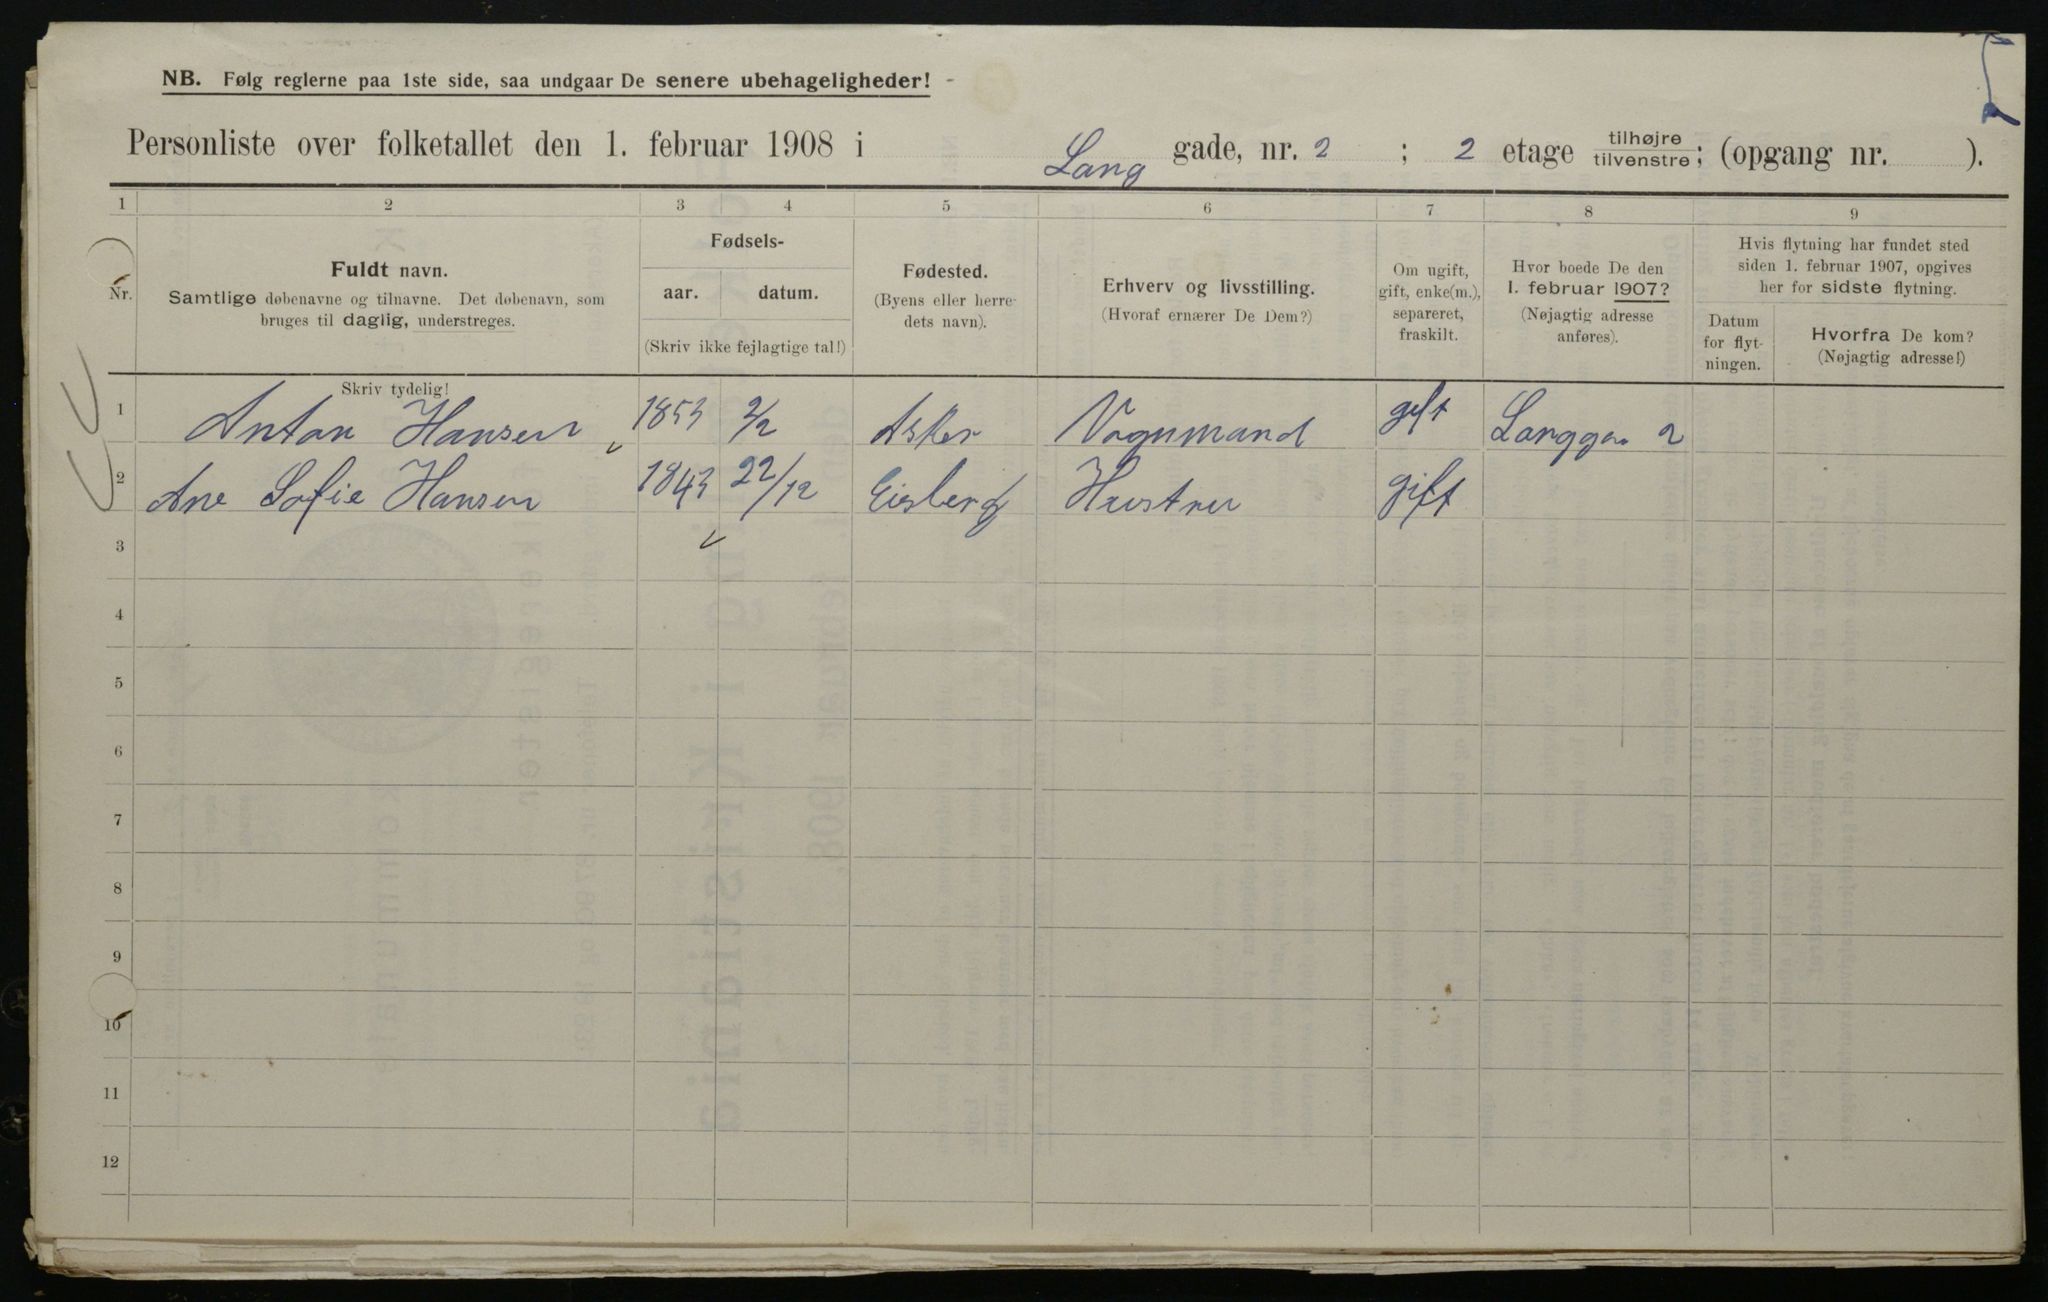 NB. Følg reglerne paa 1ste side, saa undgaar De senere ubehageligheder!
Personliste over folketallet den 1. februar 1908 i Lang gade, nr. 2 ; 2 etage tilhøjre/tilvenstre; (opgang nr. ).
1 2 3 4 5 6 7 8 9
Nr.
Fuldt navn.
Samtlige døbenavne og tilnavne. Det døbenavn, som
bruges til daglig, understreges.
Fødsels-
aar. datum.
(Skriv ikke fejlagtige tal!)
Fødested.
(Byens eller herre-
dets navn).
Erhverv og livsstilling.
(Hvoraf ernærer De Dem?)
Om ugift,
gift, enke(m.),
separeret,
fraskilt.
Hvor boede De den
1. februar 1907?
(Nøjagtig adresse
anføres).
Hvis flytning har fundet sted
siden 1. februar 1907, opgives
her for sidste flytning.
Datum
for flyt-
ningen.
Hvorfra De kom?
(Nøjagtig adresse!)
Skriv tydelig!
1 Anton Hansen 1853 2/2 Asker Vognmand gift Langga. 2
2 Ane Sofie Hansen 1843 22/12 Eisberg Hustru gift
3
4
5
6
7
8
9
10
11
12